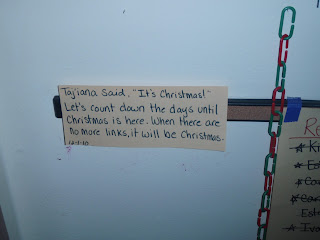 Tajiana Said, "It's Christmas!"
Let's count down the days until
Christmas is here. When there are
no more links, it will be Christmas.
12-1-10